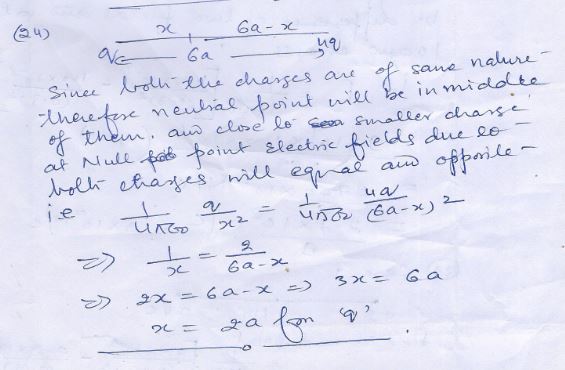 (24)
x 6a-x
q 6a 4q
Since both the charges are of same nature-
therefore neutral point will be in middle
of them. and close to smaller charge
at Null point Electric fields due to
both charges will equal and opposite-
i.e 1/4πε0 q/x2 = 1/4πε0 4q/(6a-x)2
=> 1/x = 2/6a-x
=> 2x = 6a-x => 3x = 6a
x = 2a from 'q'